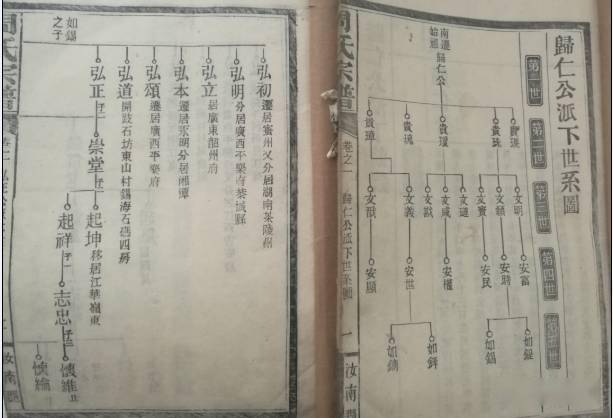 歸仁公派下世系圖
第一世
第二世
第三世
第四世
第五世
南遷始祖歸仁公
貴珠
貴環
貴瑰
貴璋
文明
文韻
文寶
文璉
文咸
文獻
文義
文猷
安富
安時
安民
安權
安世
安顯
如錕
如錫
如鐸
如鏞
周氏宗譜
卷之一
歸仁公派下世系圖
一
汝南郡
如錫之子
弘初
遷居賓州又分居湖南茶陵州
弘明
分居廣西平樂府恭城縣
弘立
居廣東韶州府
弘本
遷居東明分居湘潭
弘頌
遷居廣西平樂府
弘道
開歧石坊東山村錫海石碼四房
弘正
子一
崇堂
子二
起坤
移居江華嶺東
起祥
子一
志忠
子三
懷維
懷綸
周氏宗譜
汝南郡